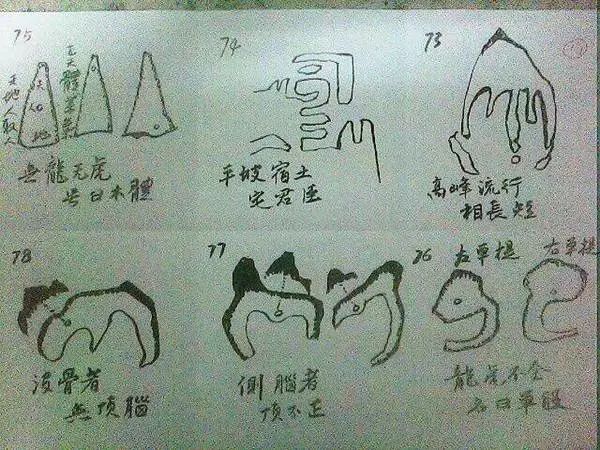 75
天地人取穴
無龍無虎
号曰木體
74
平坡宿土
定君臣
73
高峰流行
相長短
78
没骨者
無頂腦
77
側腦者
頂不正
76
左單提
右單提
龍虎不全
名曰單股